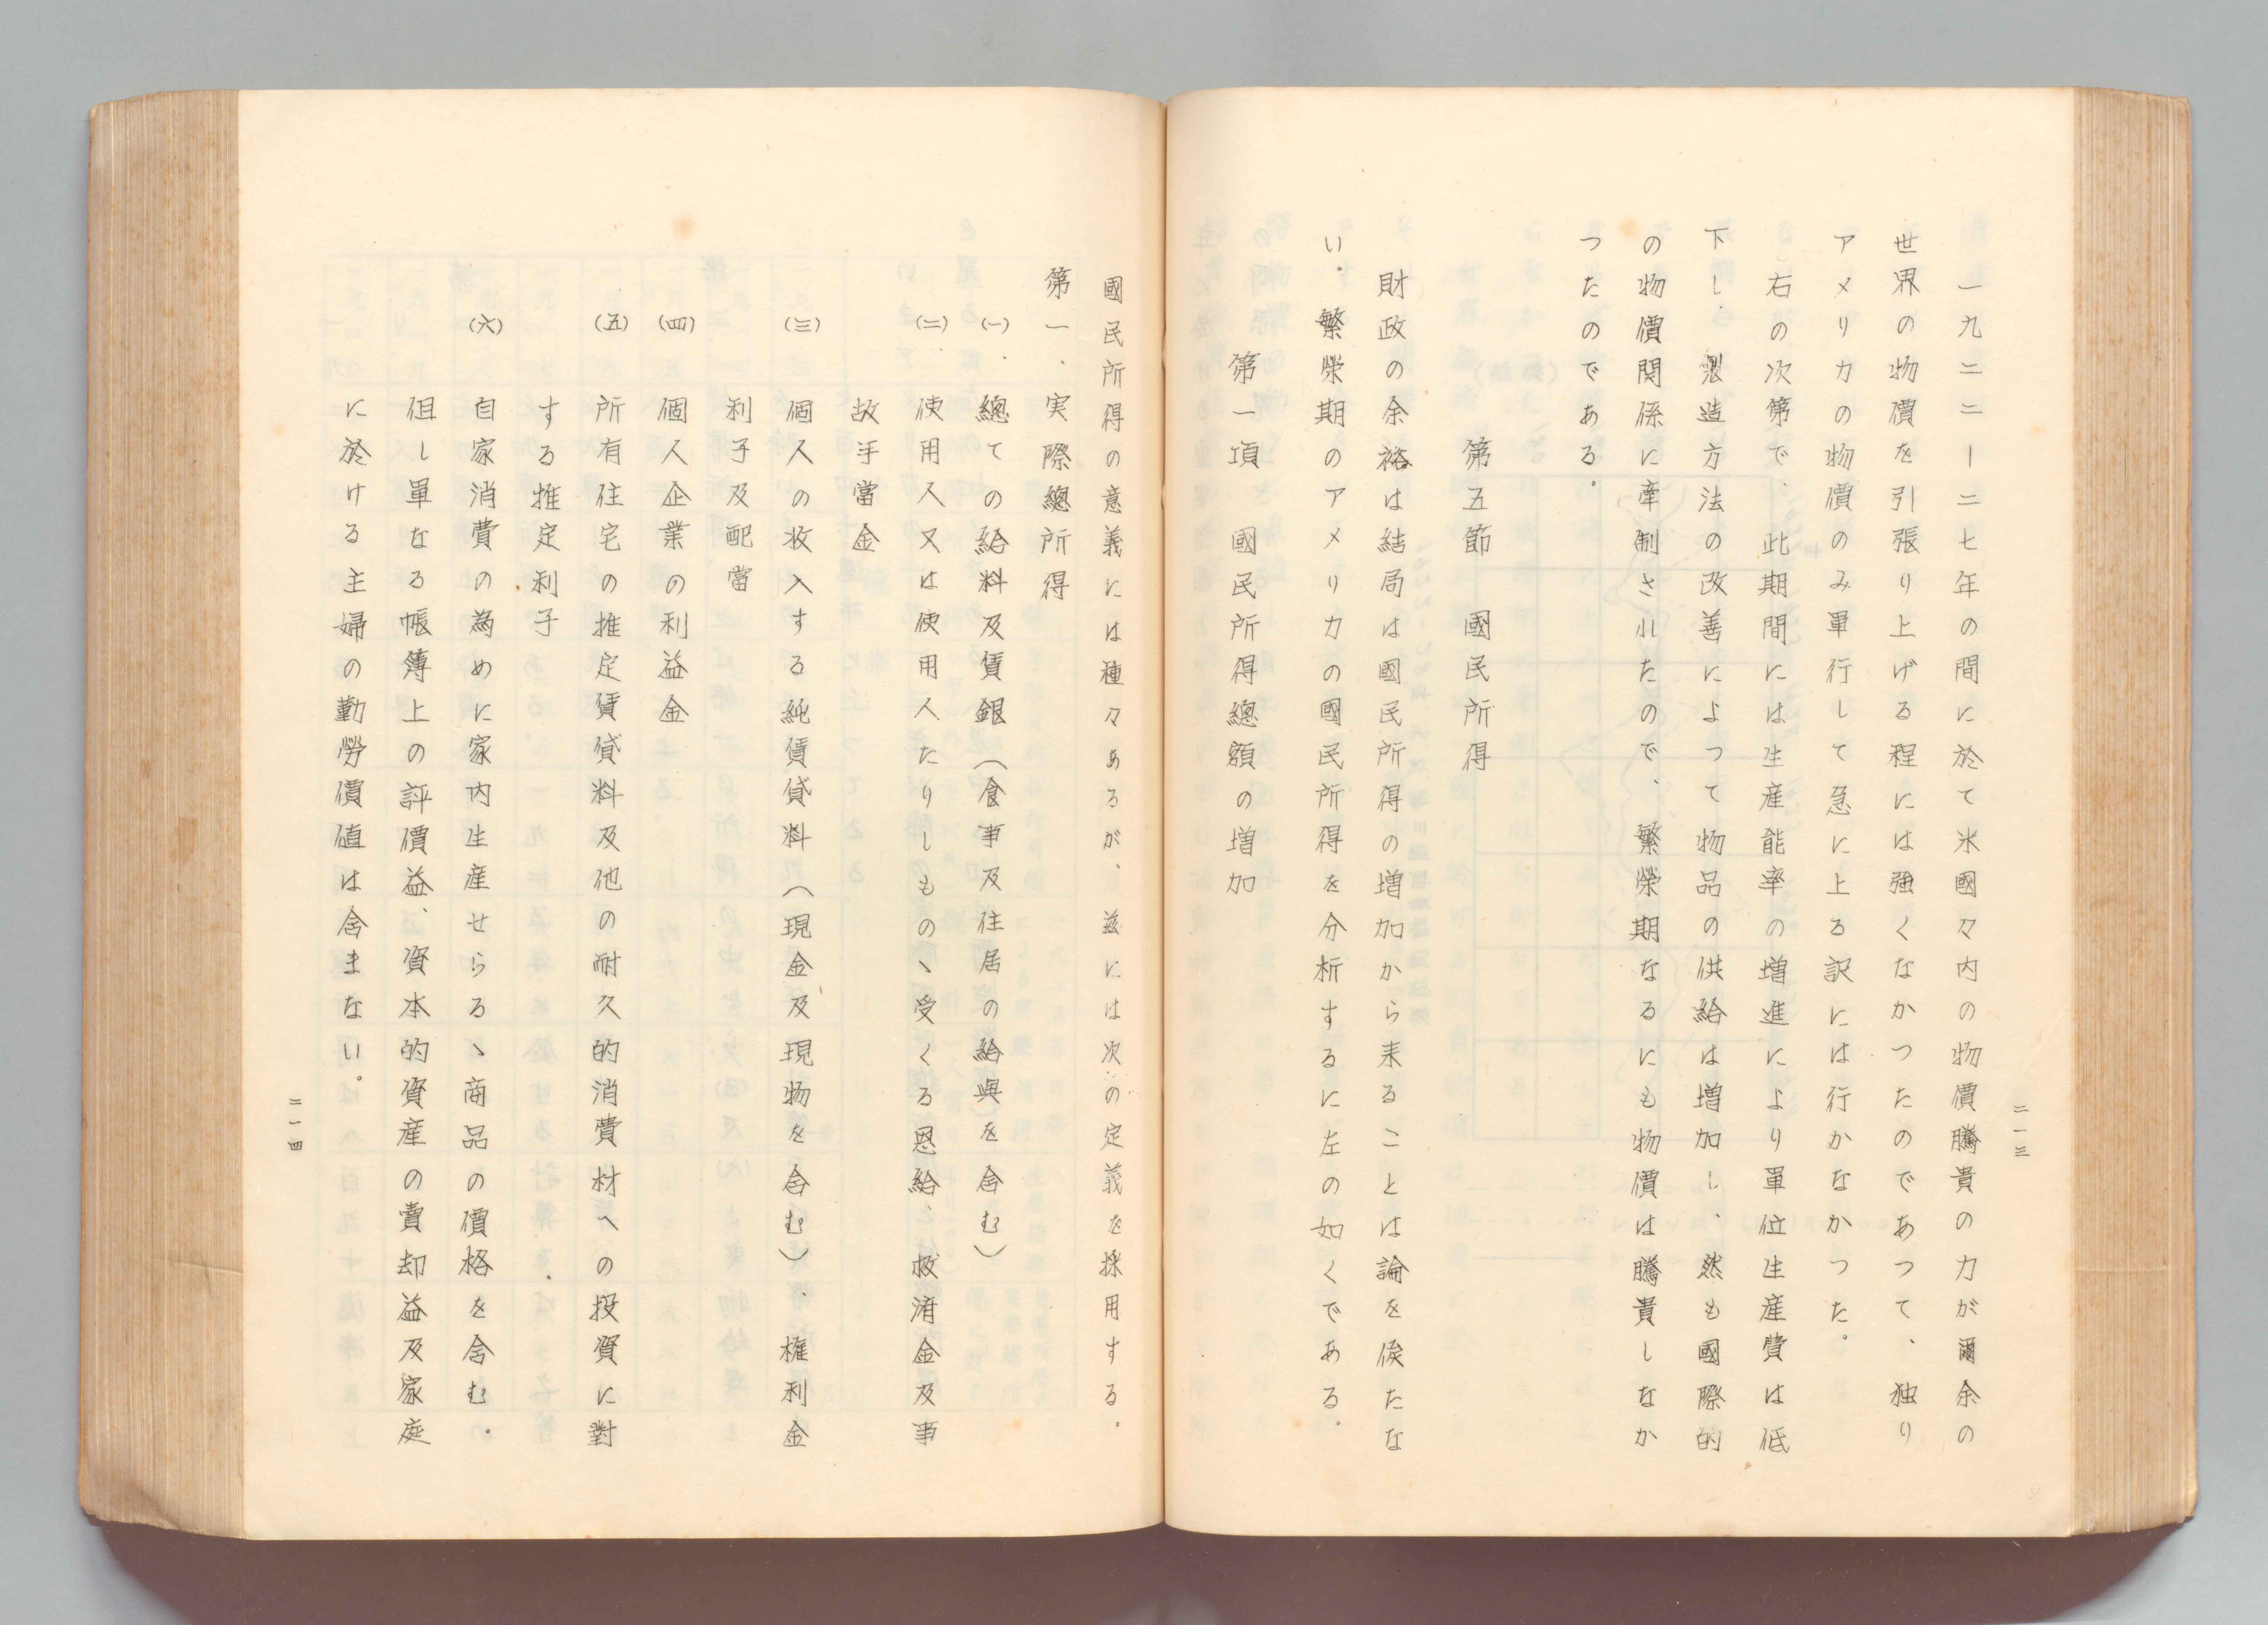 二一三
一九二二ー二七年の間に於て米國々内の物價騰貴の力が爾余の
世界の物價を引張り上げる程には強くなかつたのであつて、独り
アメリカの物價のみ單行して急に上る訳には行かなかつた。
右の次第で、此期間には生産能率の増進により單位生産費は低
下し、製造方法の改善によつて物品の供給は増加し、然も國際的
の物價関係に牽制されたので、繁榮期なるにも物價は騰貴しなか
つたのである。
第五節　國民所得
財政の余裕は結局は國民所得の増加から来ることは論を俟たな
い。繁榮期のアメリカの國民所得を分析するに左の如くである。
第一項　國民所得總額の増加
國民所得の意義には種々あるが、茲には次の定義を採用する。
第一、実際總所得
(一)、總ての給料及賃銀（食事及住居の給與を含む）
(二)、使用人又は使用人たりしものゝ受くる恩給、救済金及事
故手當金
(三)　個人の收入する純賃貸料（現金及現物を含む）、権利金
利子及配當
(四)　個人企業の利益金
(五)　所有住宅の推定賃貸料及他の耐久的消費材への投資に對
する推定利子
(六)　自家消費の為めに家内生産せらるゝ商品の價格を含む。
但し單なる帳簿上の評價益、資本的資産の賣却益及家庭
に於ける主婦の勤勞價値は含まない。
二一四